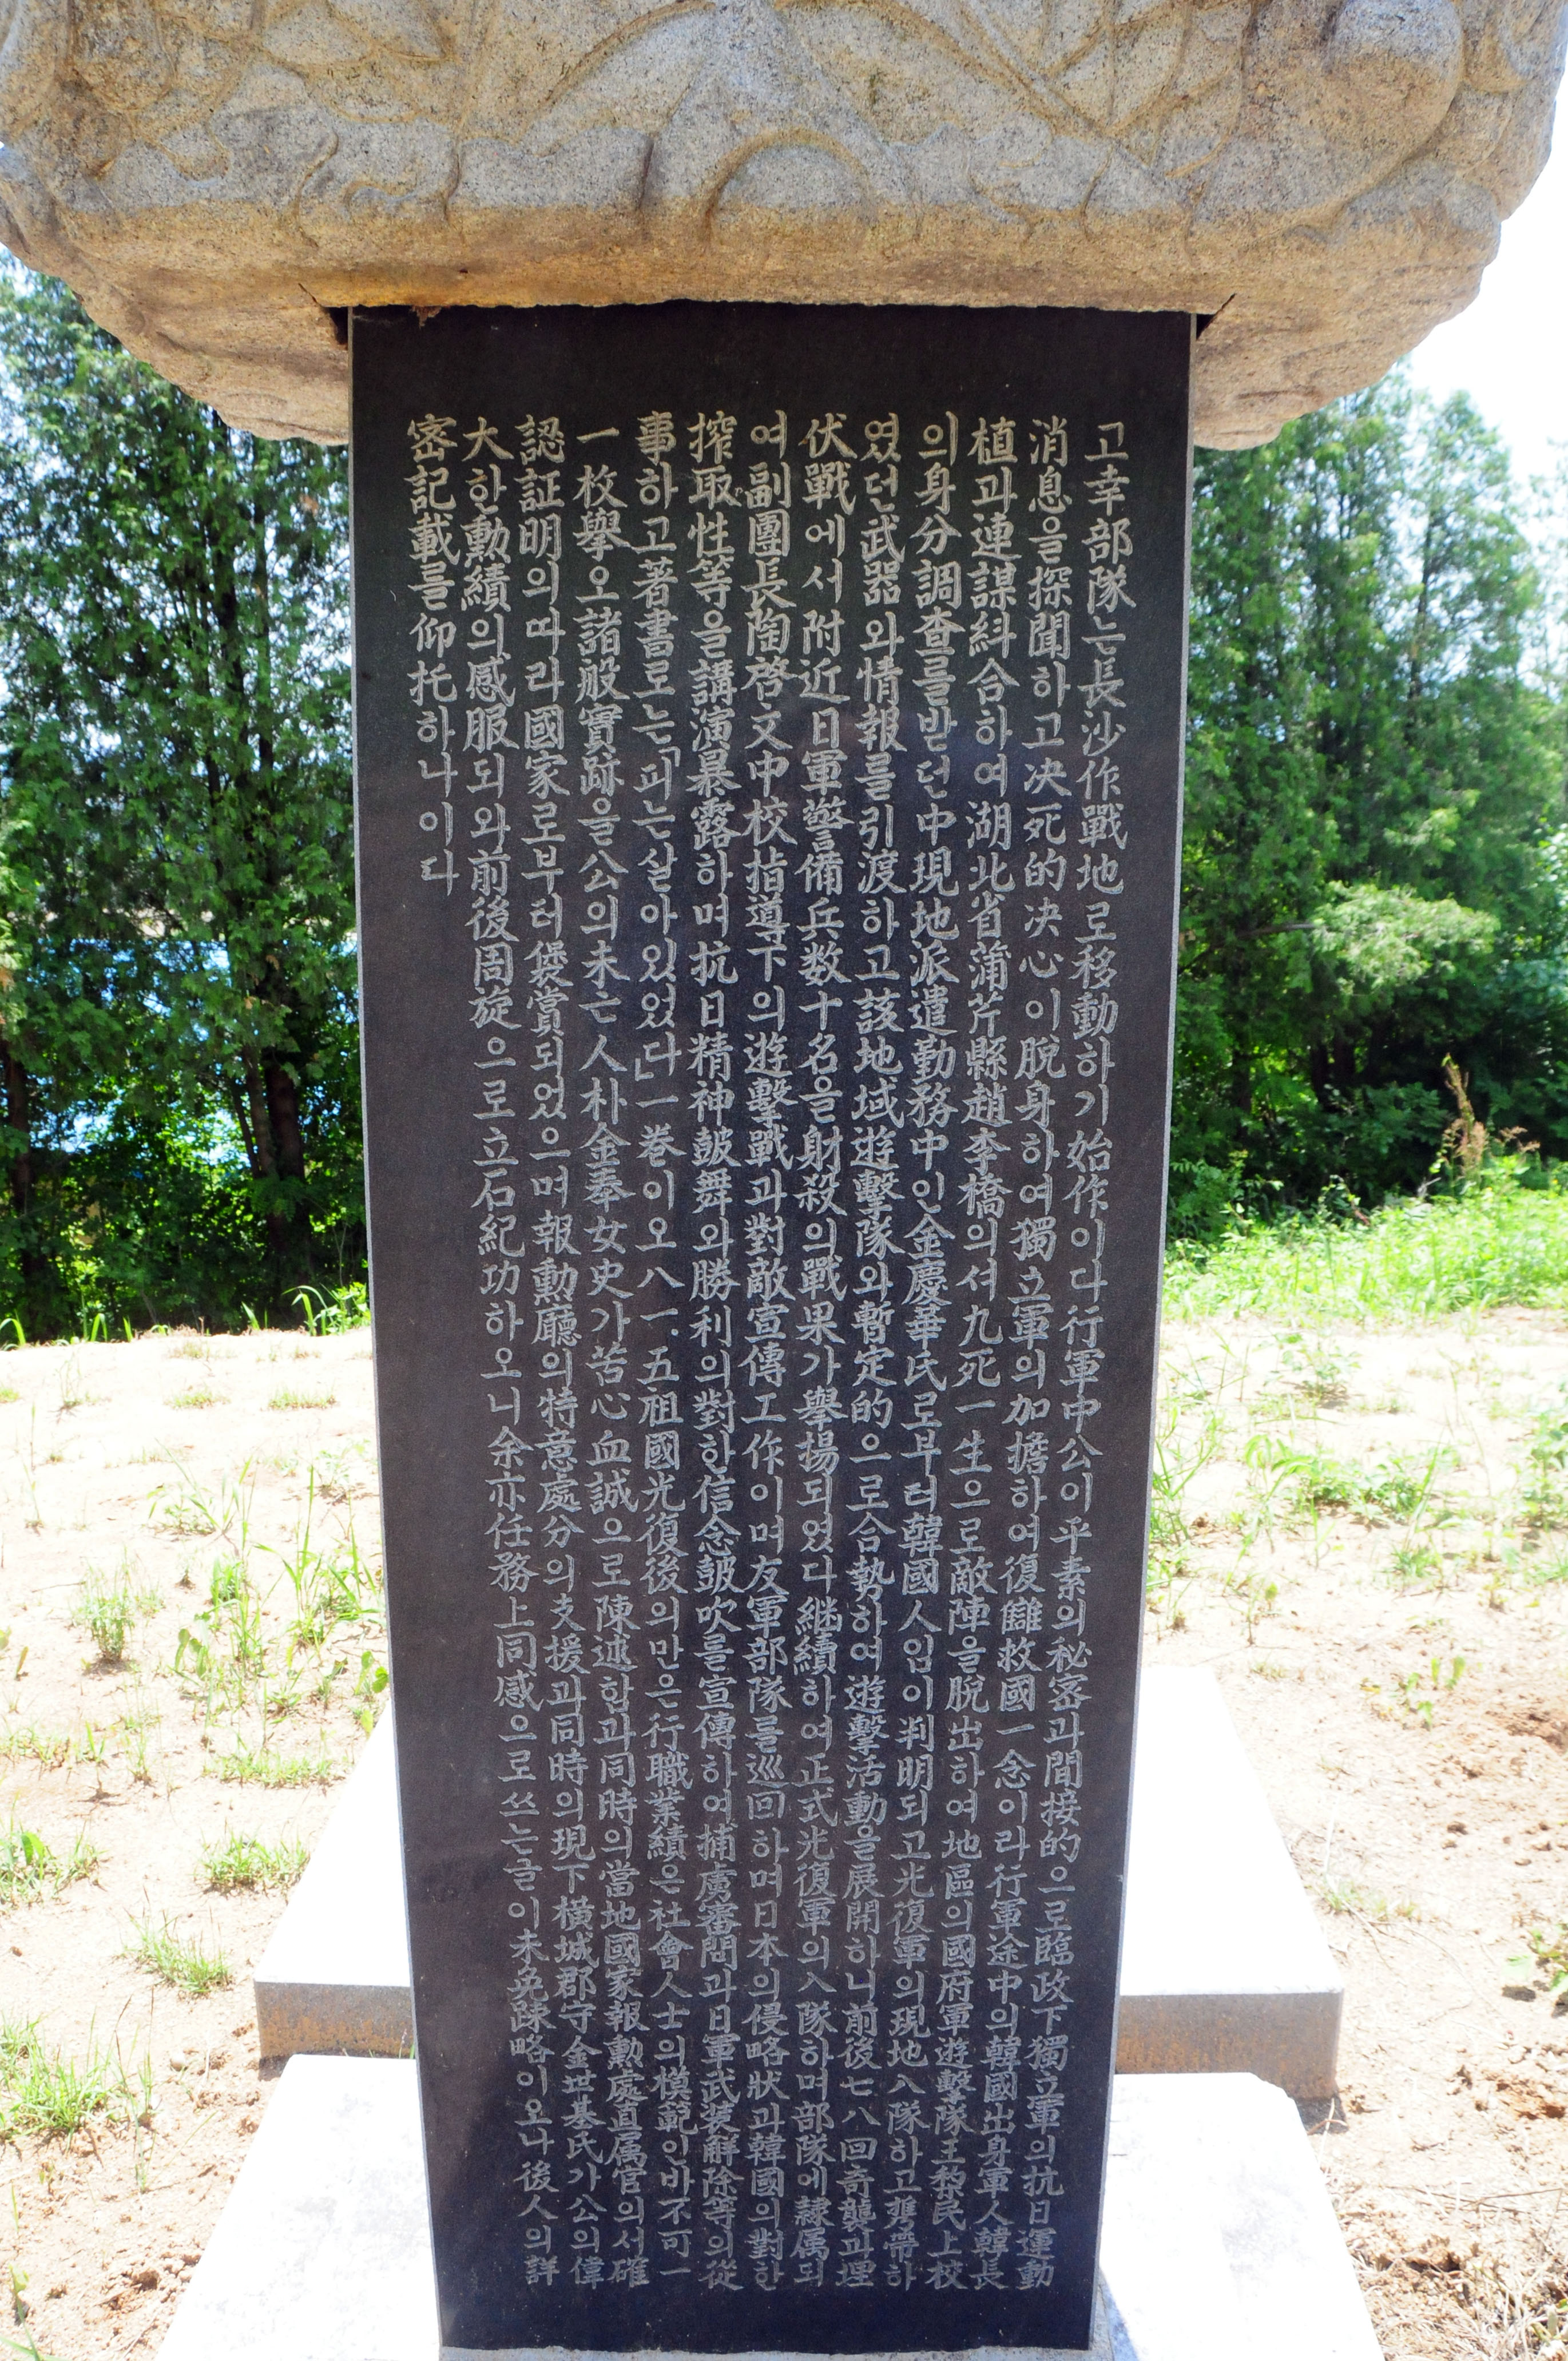 고幸部隊는長沙作戰地로移動하기始作이다行軍中公이平素의秘密과間接的으로臨政下獨立軍의抗日運動
消息을探聞하고决死的决心이脫身하여獨立軍의加擔하여復讎救國一念이라行軍途中의韓國出身軍人韓長
植과連謀糾合하여湖北省蒲芹縣趙李橋의셔九死一生으로敵陣을脫出하여地區의國府軍遊擊隊王黎民上校
의身分調查를받던中現地派遣勤務中인金慶華氏로부터韓國人임이判明되고光復軍의現地入隊하고携帶하
였던武器와情報를引渡하고該地域遊擊隊와暫定的으로合勢하여遊擊活動을展開하니前後七八回奇襲과埋
伏戰에서附近日軍警備兵数十名을射殺의戰果가擧揚되였다継續하여正式光復軍의入隊하며部隊에隷属되
여副團長陶啓文中校指導下의遊擊戰과對敵宣傳工作이며友軍部隊를巡回하며日本의侵略狀과韓國의對한
搾取性等을講演暴露하며抗日精神鼓舞와勝利의對한信念鼓吹를宣傳하여捕虜審問과日軍武裝解除等의從
事하고著書로는「피는살아있었다」一巻이오八一.五祖國光復後의만은行職業績은社會人士의模範인바不可一
一枚擧오諸般實跡을公의未亡人朴金奉女史가苦心血誠으로陳述함과同時의當地國家報勳處直属官의서確
認証明의따라國家로부터褒賞되었으며報勳廳의特意處分의支援과同時의現下橫城郡守金世基氏가公의偉
大한勳績의感服되와前後周旋으로立石紀功하오니余亦任務上同感으로쓰는글이未免疎略이오나後人의詳
密記載를仰托하나이다